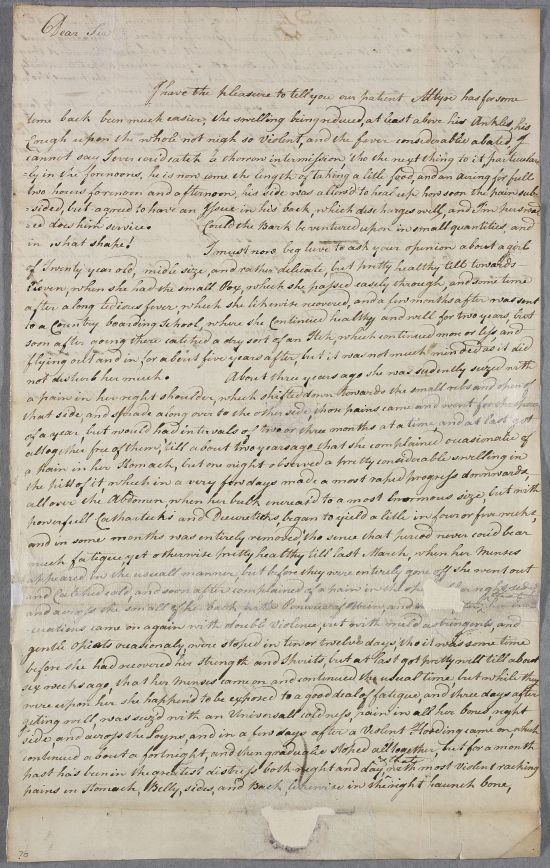 Dear Sir
I have the pleasure to tell you our patient Altyre has for some
time back been much easier, the swelling being reduced, at least above his Ankles, his
Cough upon the whole not nigh so violent, and the fever considerablie abated, I
cannot say I ever could catch a thorrow intermission, tho the next thing to it particular-
-ly in the fornoons, he is now come the length of taking a litle food, and an airing for full
two hours fornoon and afternoon, his side was allow'd to heal up, how soon the pain sub-
-sided, but agreed to have an Issue in his back, which discharges well, and I'm perswad
-ed does him service. Could the Bark be ventured upon in small quantities, and
in what shape?
I must now beg leive to ask your opinion about a girl
of Twenty year old, midle size, and rather delicate, but pretty healthy till towards
Eleven, when she had the small Pox, which she passed easely through, and some time
after a long tedious fever, which she likewise recovered, and a few months after was sent
to a Country boarding School, where she Continued healthy and well for two years but
soon after going there catched a dry sort of an Itch, which continued mor or less and
flying out and in for about five years after, but it was not much minded as it did
not disturb her much. About three years ago she was sudently seized with
a pain in her right shoulder, which shifted down towards the small ribs and spin of
that side, and strade along over to the other side, thir pains came and went for the space
of a year, but would had intervals of two or three months at a time, and at last got
alltogether free of them, till about two years ago that she complained occasionalie of
a pain in her Stomach, but one night observed a pretty considerable swelling in
the pitt of it, which in a very few days made a most rapid progress downwards,
all over the Abdomen, when her bulk increas'd to a most enormous size, but with
powerfull Catharticks and Deureticks began to yield a litle in four or five weeks,
and in some months was entirely removed, tho since that period never could bear
much fatigue, yet otherwise pritty healthy till last March, when her Menses
appeared in the usuall manner, but before they were entirely gone off she went out
and Catched cold, and soon after complained of a pain in the
and across the small of the back, and
-cuations came on again with double violence, but with mild astringents, and
gentle Opiats occasionaly, were stoped in ten or twelve days, tho it was some time
before she had recovered her strength and Spirits, but at last got pretty well till about
six weeks ago, that her Menses came on and continued the usual time, but while they
were upon her she happend to be exposed to a good deal of fatigue, and three days after
geting well, was seiz'd with an Universall coldness, pain in all her bones right
side, and across the Loyns, and in a few days after a Violent Flooding came on which
continued about a fortnight, and then gradualie stoped alltogether, but for a month
past has been in the greatest distress both night and day with most violent racking
pains in Stomach, Belly, sides, and Back, likewise in the right haunch bone,
70